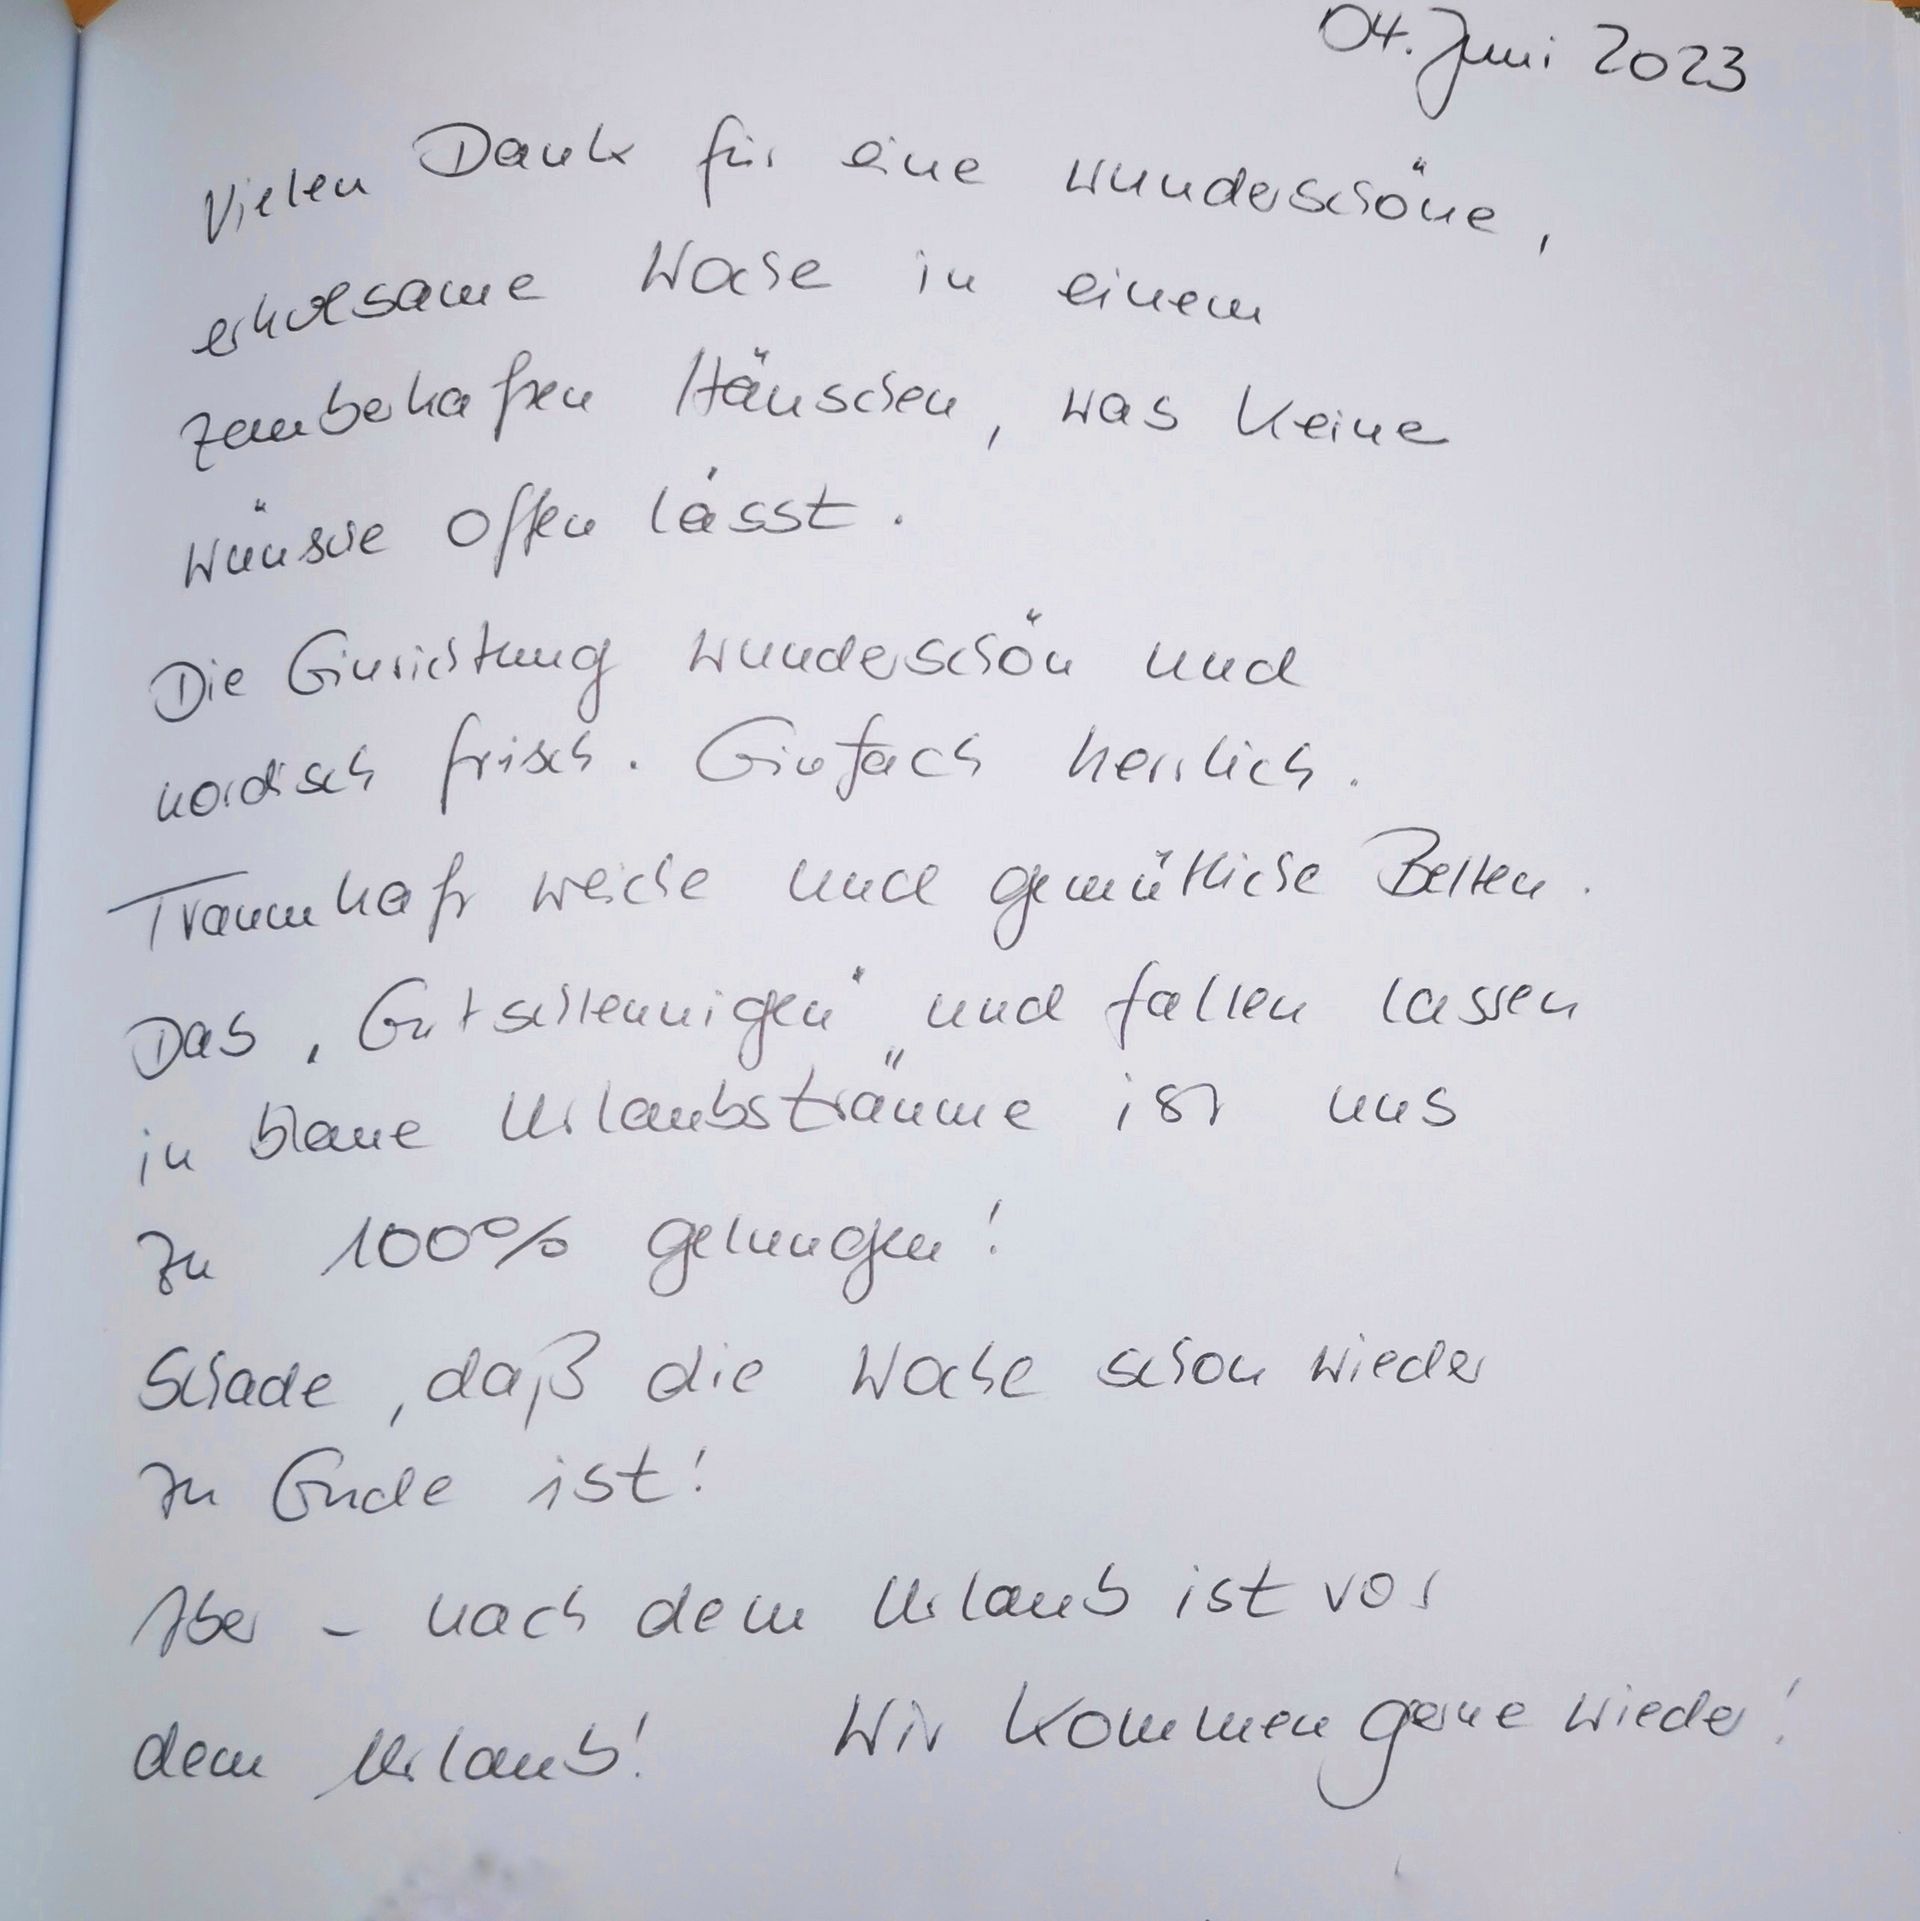 04. Juni 2023
Vielen Dank für eine wunderschöne,
erholsame Woche in einem
zauberhaften Häuschen, was keine
Wünsche offen lässt.
Die Einrichtung wunderschön und
nordisch frisch. Einfach herrlich.
Traumhaft weiche und gemütliche Betten.
Das "Entschleunigen" und fallen lassen
in blaue Urlaubsträume ist uns
zu 100% gelungen!
Schade, daß die Woche schon wieder
zu Ende ist!
Aber - nach dem Urlaub ist vor
dem Urlaub! Wir kommen gerne wieder!